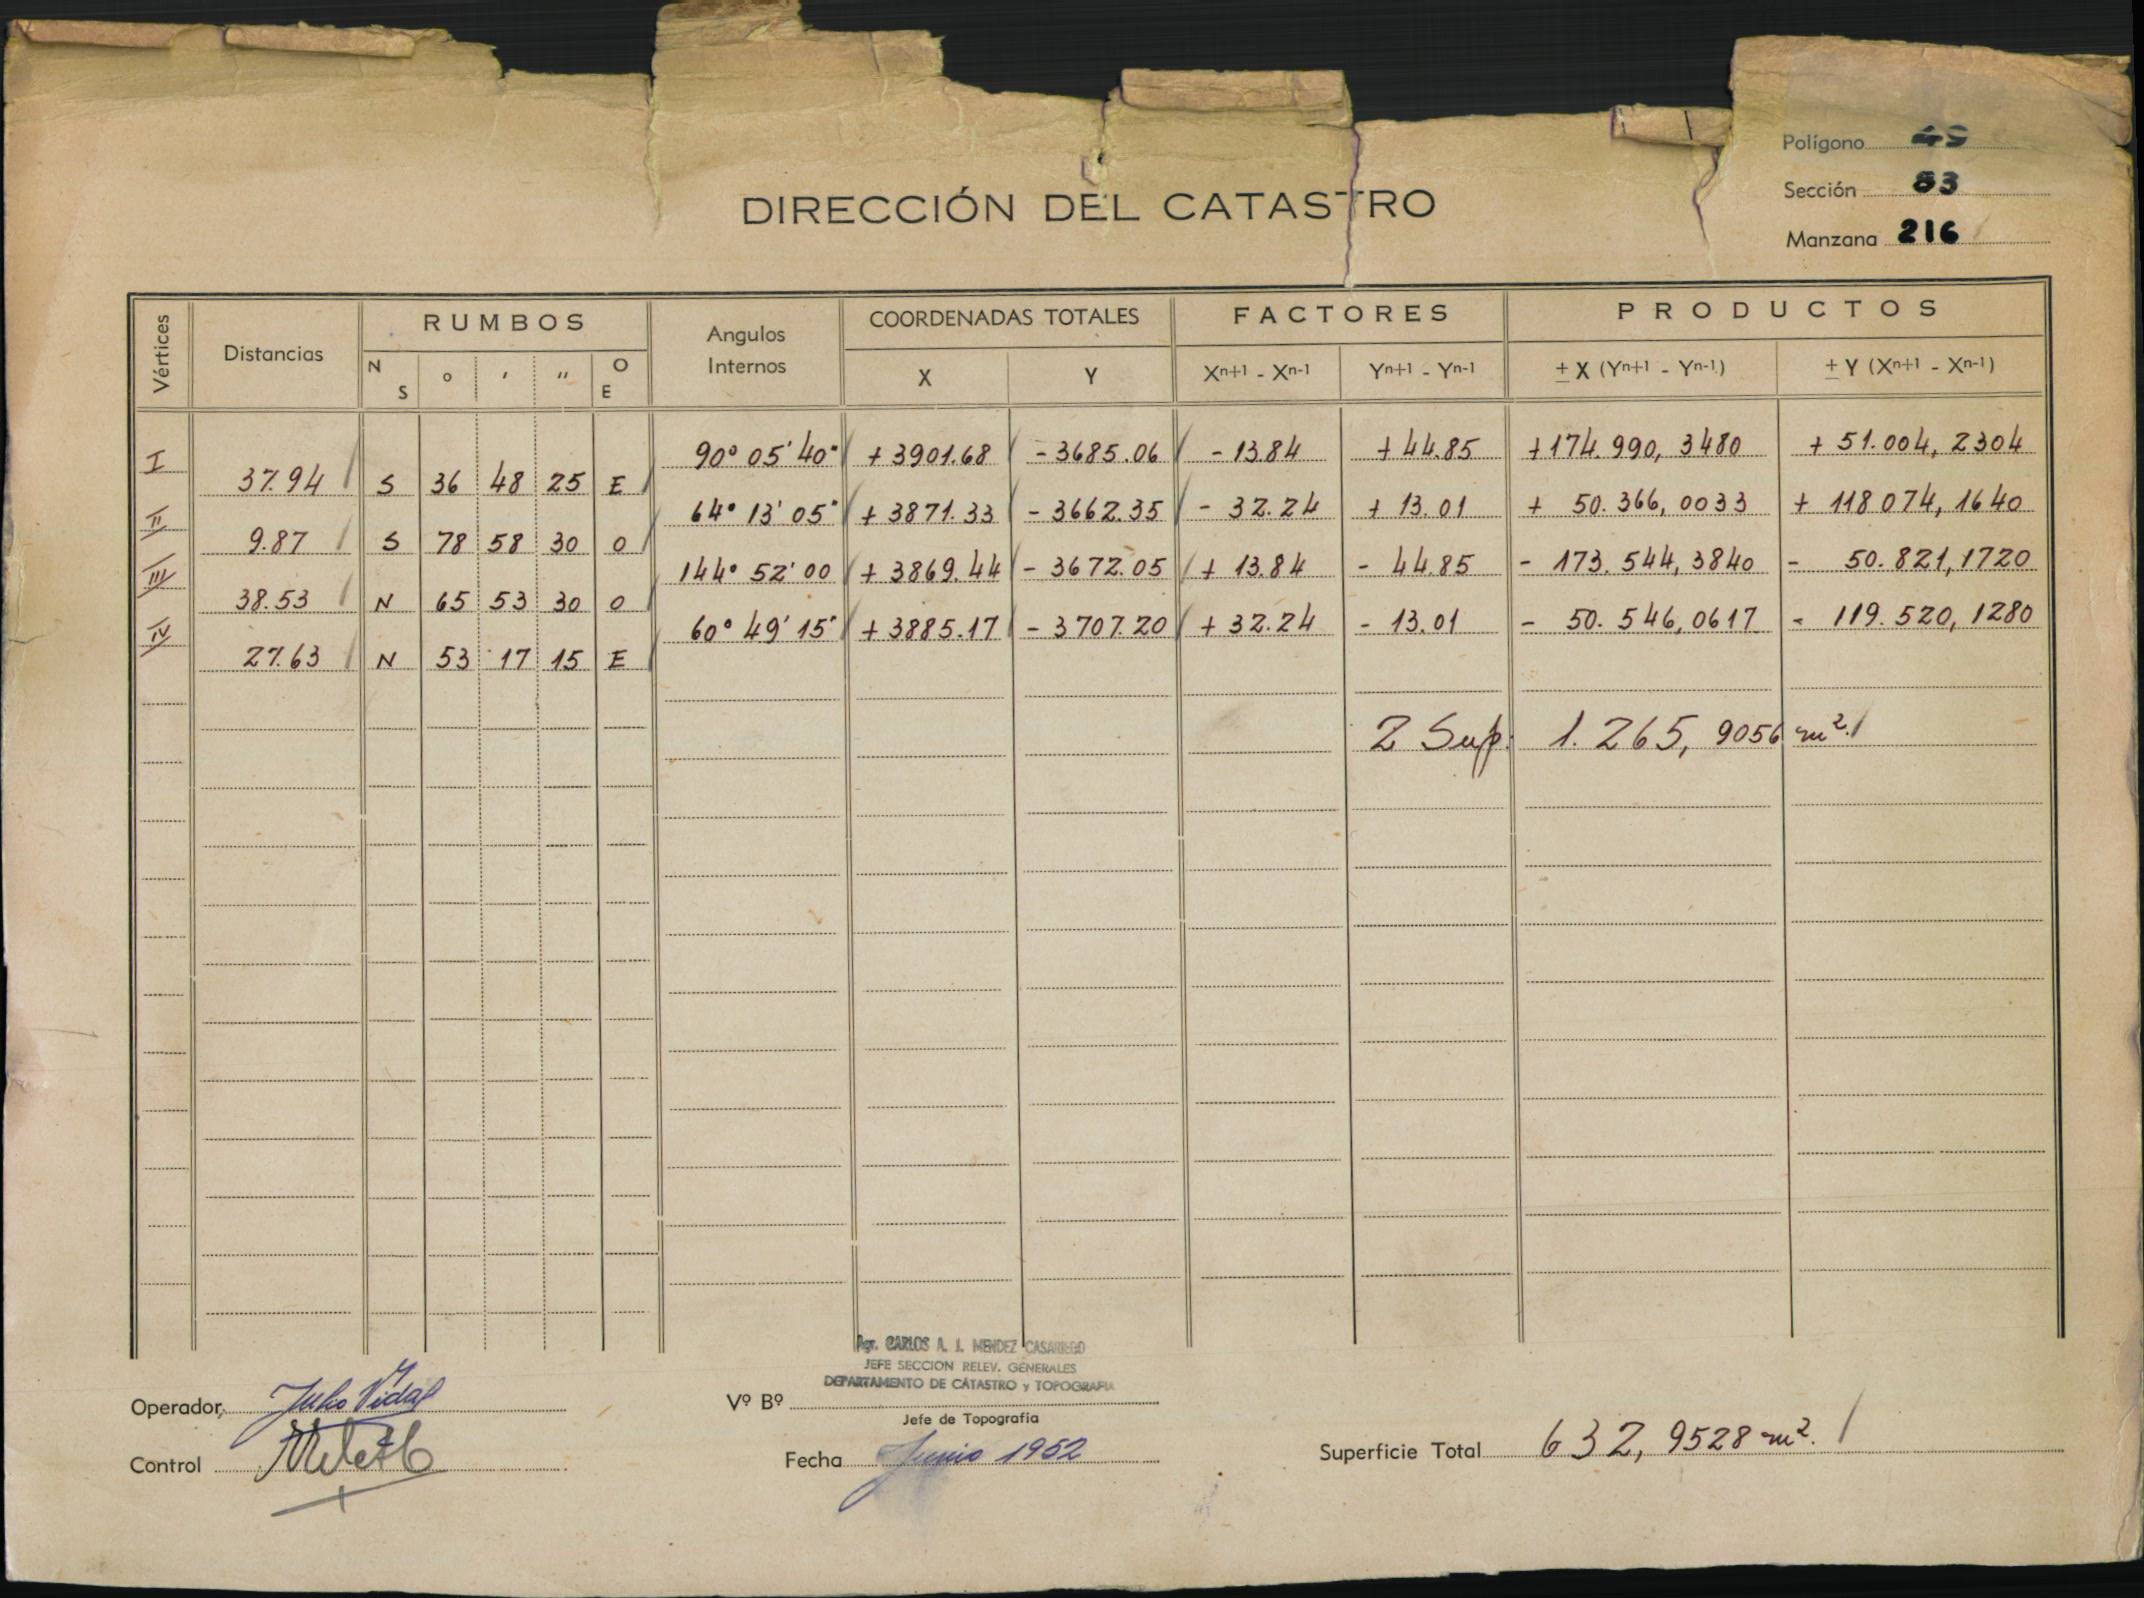 Polígono 49
Sección 83
Manzana 216
DIRECCIÓN DEL CATASTRO
Vértices Distancias RUMBOS Angulos Internos COORDENADAS TOTALES FACTORES PRODUCTOS
N S ° ' " O E X Y Xⁿ⁺¹ - Xⁿ⁻¹ Yⁿ⁺¹ - Yⁿ⁻¹ ± X (Yⁿ⁺¹ - Yⁿ⁻¹) ± Y (Xⁿ⁺¹ - Xⁿ⁻¹)
I 90° 05' 40" + 3901.68 - 3685.06 - 13.84 + 44.85 + 174.990, 3480 + 51.004, 2304
37.94 S 36 48 25 E
II 64° 13' 05" + 3871.33 - 3662.35 - 32.24 + 13.01 + 50.366, 0033 + 118 074, 1640
9.87 S 78 58 30 O
III 144° 52' 00 + 3869.44 - 3672.05 + 13.84 - 44.85 - 173.544, 3840 - 50.821, 1720
38.53 N 65 53 30 O
IV 60° 49' 15" + 3885.17 - 3707.20 + 32.24 - 13.01 - 50.546, 0617 - 119.520, 1280
27.63 N 53 17 15 E
2 Sup. 1.265, 9056 m².
Agr. CARLOS A. J. MENDEZ CASARIEGO
JEFE SECCION RELEV. GENERALES
DEPARTAMENTO DE CATASTRO y TOPOGRAFIA
Operador, Julio Vidal Vº Bº
Jefe de Topografía
Control Fecha Junio 1952 Superficie Total 632, 9528 m².